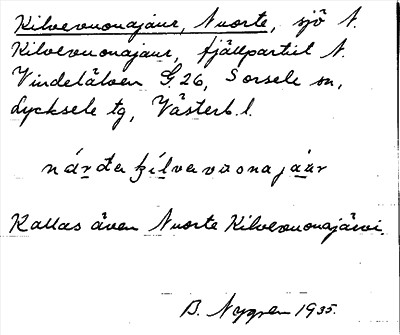 Kilvevuonajaur, Nuorte, sjö N.
Kilvevuonajaur, fjällpartiet N.
Vindelälven G. 26, Sorsele sn,
Lycksele tg, Västerb. l.
nárda kílvavuonajáur
Kallas även Nuorte Kilvevuonajärvi.
B. Nygren 1935.